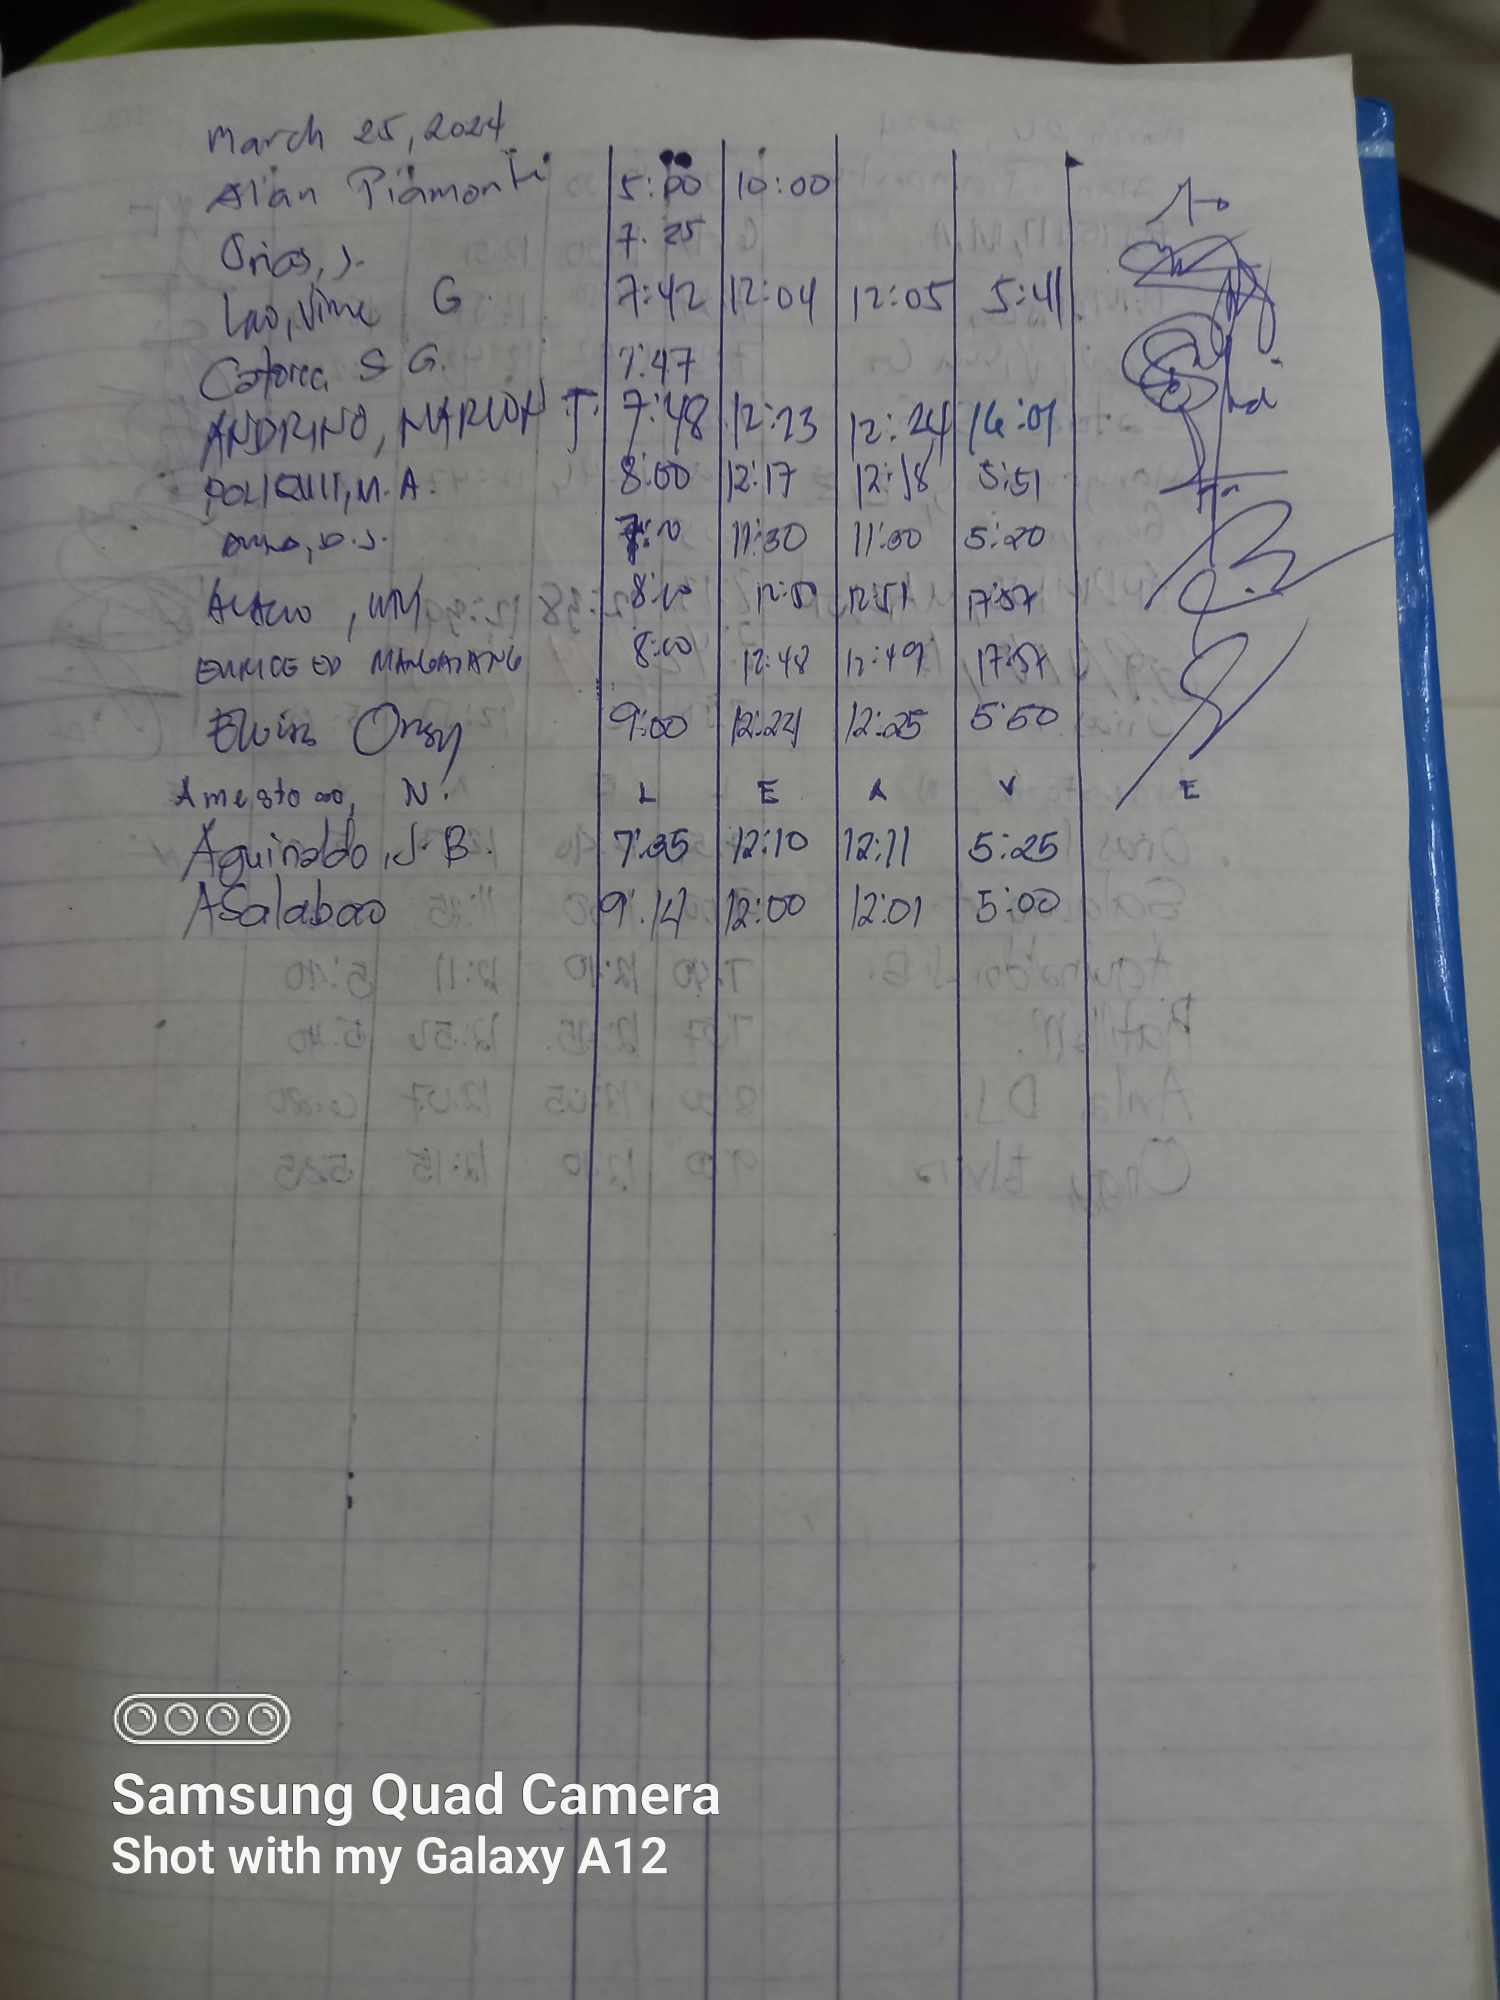 March 25, 2024
Alan Piamonte 5:00 10:00
Orias, J. 7:25
Lao, Vime G. 7:42 12:04 12:05 5:41
S G. 7:47
ANDRINO, MARLON J. 7:48 12:23 12:24 16:01
POLIQUIT, M.A. 8:00 12:17 12:18 5:51
D.J. 11:30 5:20
8:00 12:50 12:51 17:57
8:00 12:48 12:49 17:57
Elvira Ongy 9:00 12:24 12:25 5:50
Amestoso, N. L E A V E
Aguinaldo, J.B. 7:35 12:10 12:11 5:25
ASalabao 9:14 12:00 12:01 5:00
Samsung Quad Camera
Shot with my Galaxy A12